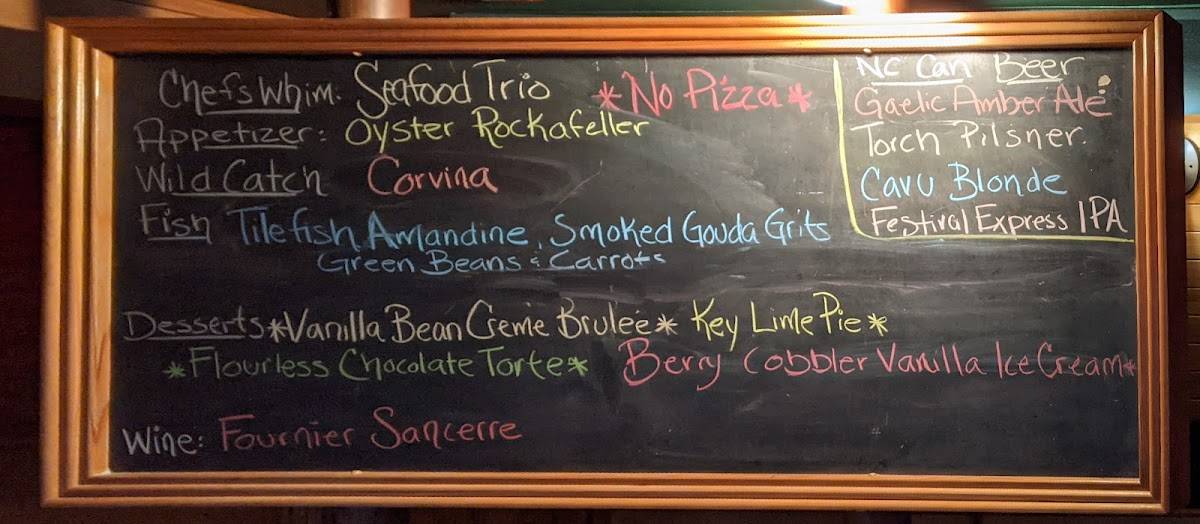 Chefs Whim: Seafood Trio *No Pizza*
Appetizer: Oyster Rockafeller
Wild Catch Corvina
Fish Tilefish Amandine, Smoked Gouda Grits
Green Beans & Carrots
Desserts *Vanilla Bean Creme Brulee* Key Lime Pie*
*Flourless Chocolate Torte* Berry Cobbler Vanilla Ice Cream*
Wine: Fournier Sancerre
NC Can Beer
Gaelic Amber Ale
Torch Pilsner.
Cavu Blonde
Festival Express IPA